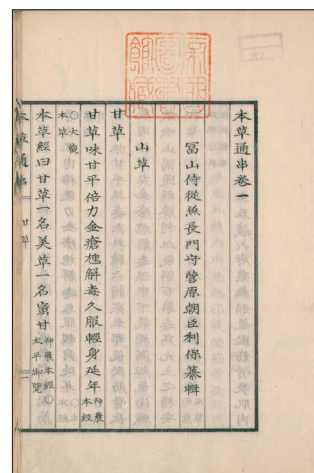 本草通串卷一
冨山侍從兼長門守菅原朝臣利保纂輯
山草
甘草
甘草味甘平倍力金瘡尰解毒久服輕身延年神農本經
〇大觀本草
本草經曰甘草一名美草一名蜜甘神農本經〇太平御覽
本草通串
甘草
一